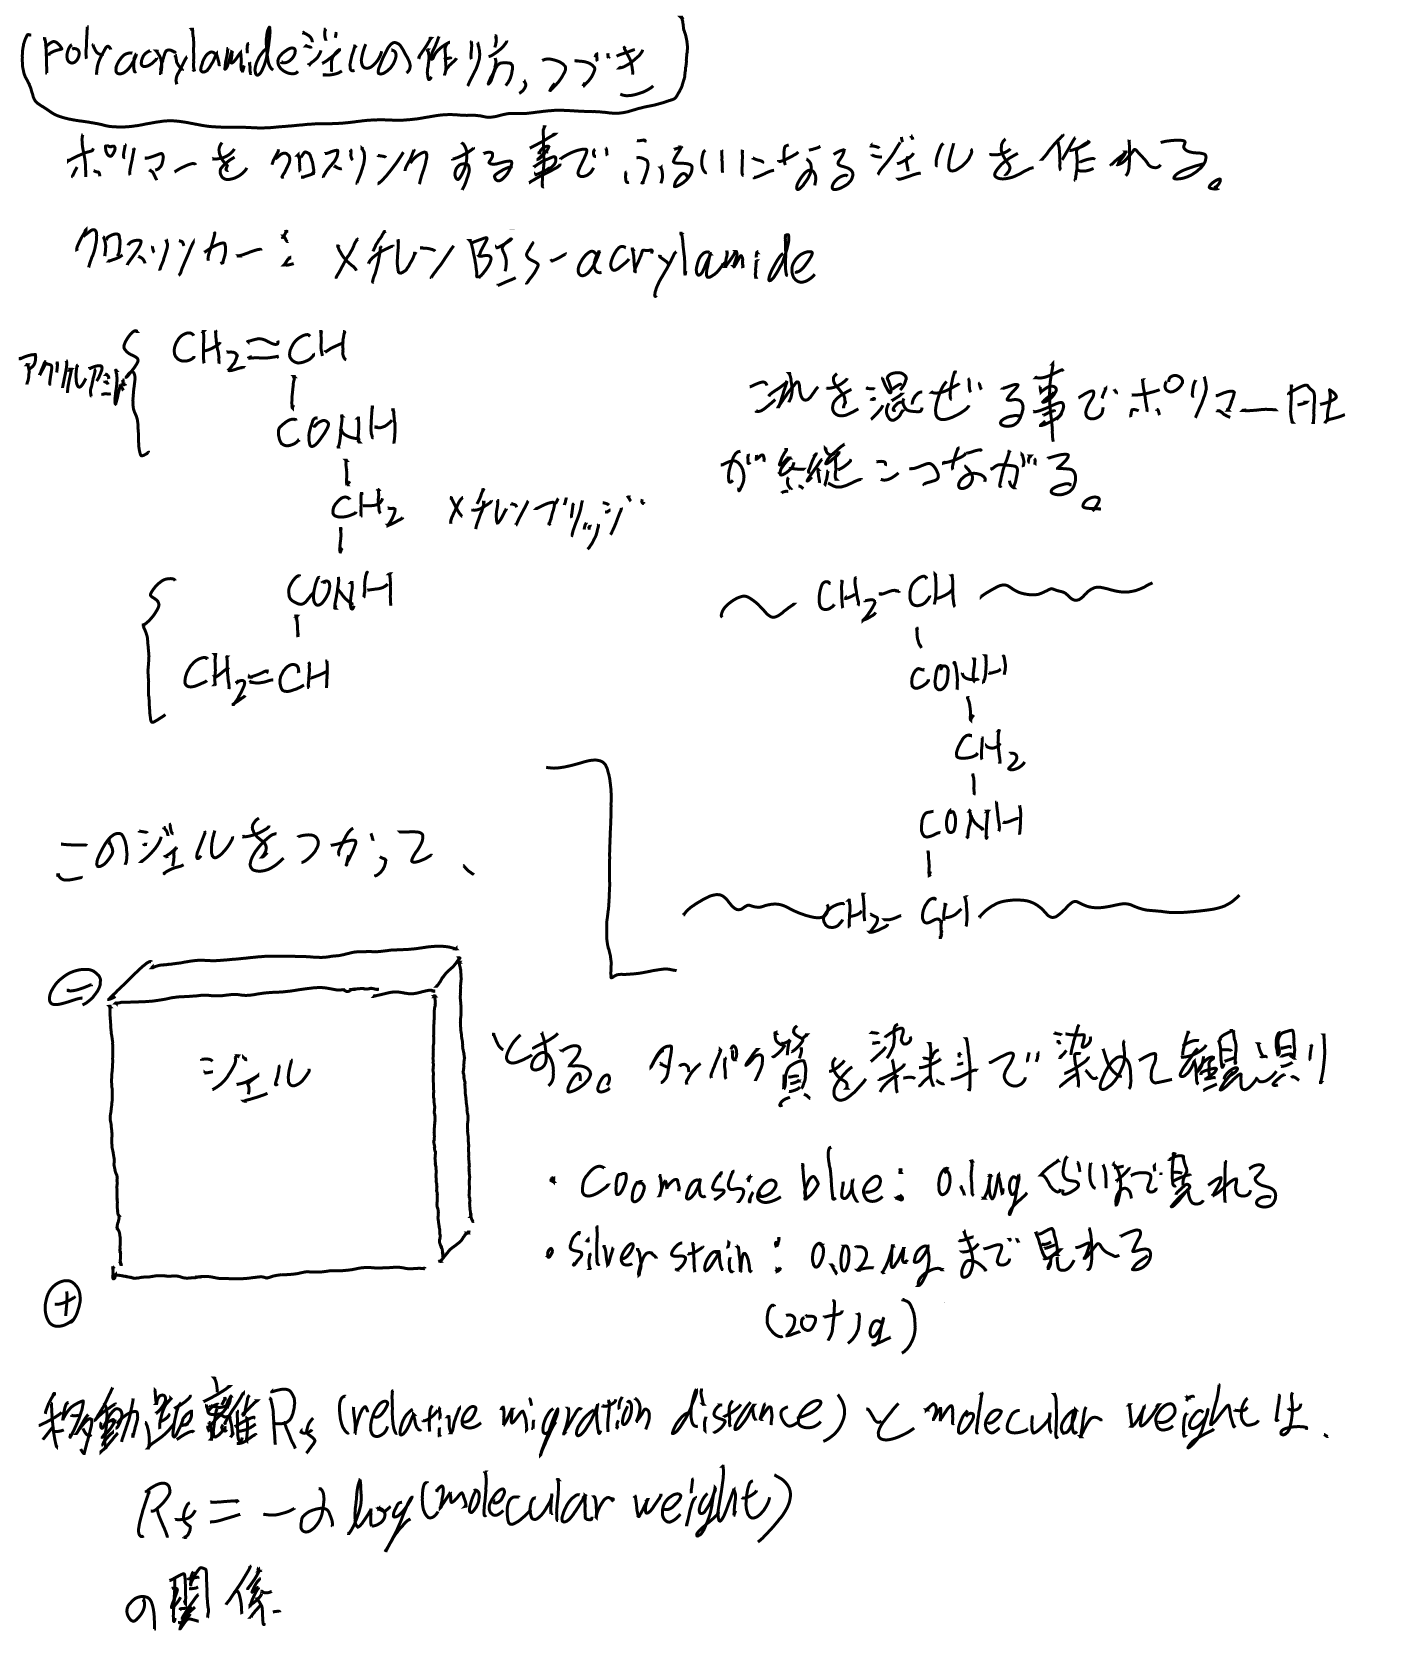 polyacrylamideジェルの作り方,つづき
ポリマーをクロスリンクする事でふるいになるジェルを作れる。
クロスリンカー: メチレンBIS-acrylamide
アクリルアミド
CH2=CH
CONH
CH2 メチレンブリッジ
CONH
CH2=CH
これを混ぜる事でポリマー同士
が縦につながる。
CH2-CH
CONH
CH2
CONH
CH2-CH
このジェルをつかって、
⊖
ジェル
⊕
とする。タンパク質を染料で染めて観測
・Coomassie blue: 0.1μgくらいまで見れる
・Silver stain: 0.02μgまで見れる
(20ナノg)
移動距離Rf (relative migration distance)とmolecular weightは、
Rf = -α log(molecular weight)
の関係.